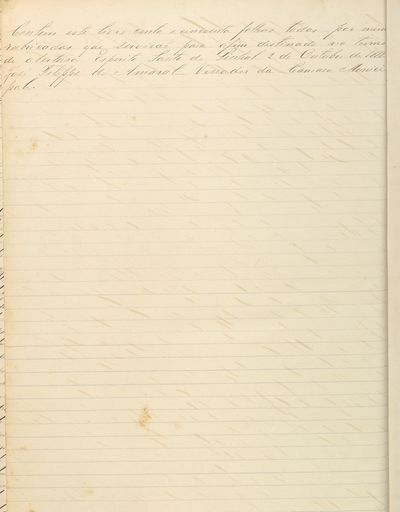 Contem este livro cento e cincoenta folhas todas por mim
rubricadas que servirão para o fim destinado no termo
de abertura. Espirito Santo do Pinhal 2 de Outubro de
José Felippe do Amaral Vereador da Camara Munici
pal.